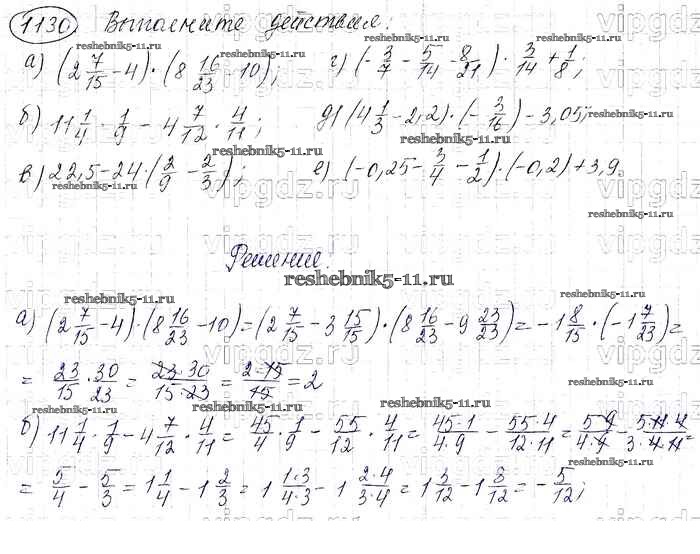 1130 Выполните действия:
а) (2 7/15 - 4) · (8 16/23 - 10); г) (- 3/7 - 5/14 - 8/21) · 3/14 + 1/8;
б) 11 1/4 · 1/9 - 4 7/12 · 4/11; д) (4 1/3 - 2,2) · (- 3/16) - 3,05;
в) 22,5 - 24 · (2/9 - 2/3); е) (-0,25 - 3/4 - 1/2) · (-0,2) + 3,9.
Решение.
reshebnik5-11.ru
а) (2 7/15 - 4) · (8 16/23 - 10) = (2 7/15 - 3 15/15) · (8 16/23 - 9 23/23) = - 1 8/15 · (- 1 7/23) =
= 23/15 · 30/23 = 23·30/15·23 = 2·15/15 = 2
б) 11 1/4 · 1/9 - 4 7/12 · 4/11 = 45/4 · 1/9 - 55/12 · 4/11 = 45·1/4·9 - 55·4/12·11 = 5·9/4·9 - 5·11·4/3·4·11 =
= 5/4 - 5/3 = 1 1/4 - 1 2/3 = 1 1·3/4·3 - 1 2·4/3·4 = 1 3/12 - 1 8/12 = - 5/12;
vipgdz.ru